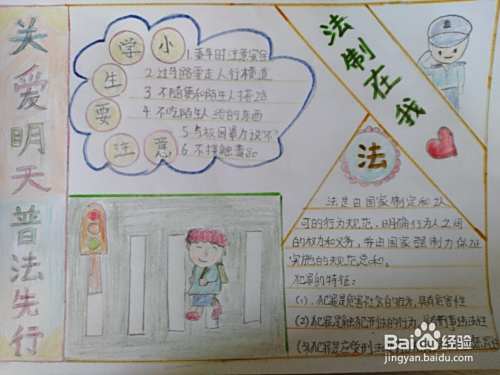 关爱明天普法先行
小学生要注意
1.乘车时注意安全
2 过马路要走人行横道
3 不随便和陌生人搭话
4 不吃陌生人给的东西
5 与校园暴力说不
6 不接触毒品
法制在我
法
法是由国家制定和认
可的行为规范，明确行为人之间
的权力和义务，并由国家强制力保证
实施的规范总和。
犯罪的特征：
(1)、犯罪是危害社会的行为，具有危害性
(2)犯罪是触犯刑法的行为，
(3)犯罪是应受刑
Baidu经验
jingyan.baidu.com